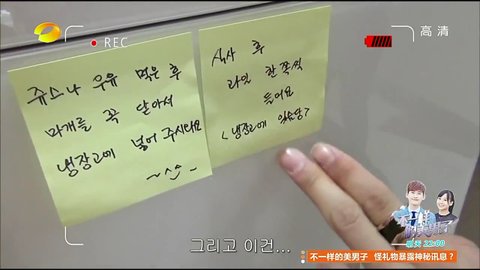 REC
高清
쥬스나 우유 먹은 후
마개를 꼭 닫아서
냉장고에 넣어 주시와요
식사 후
과일 한쪽씩
들어요
<냉장고에 있어용?
그리고 이건...
22:00
不一样的美男子 怪礼物暴露神秘讯息?